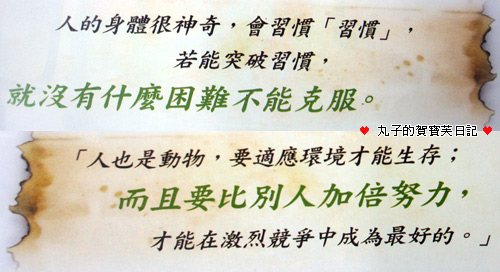 人的身體很神奇，會習慣「習慣」，
若能突破習慣，
就沒有什麼困難不能克服。
♥ 丸子的賀寶芙日記 ♥
「人也是動物，要適應環境才能生存；
而且要比別人加倍努力，
才能在激烈競爭中成為最好的。」